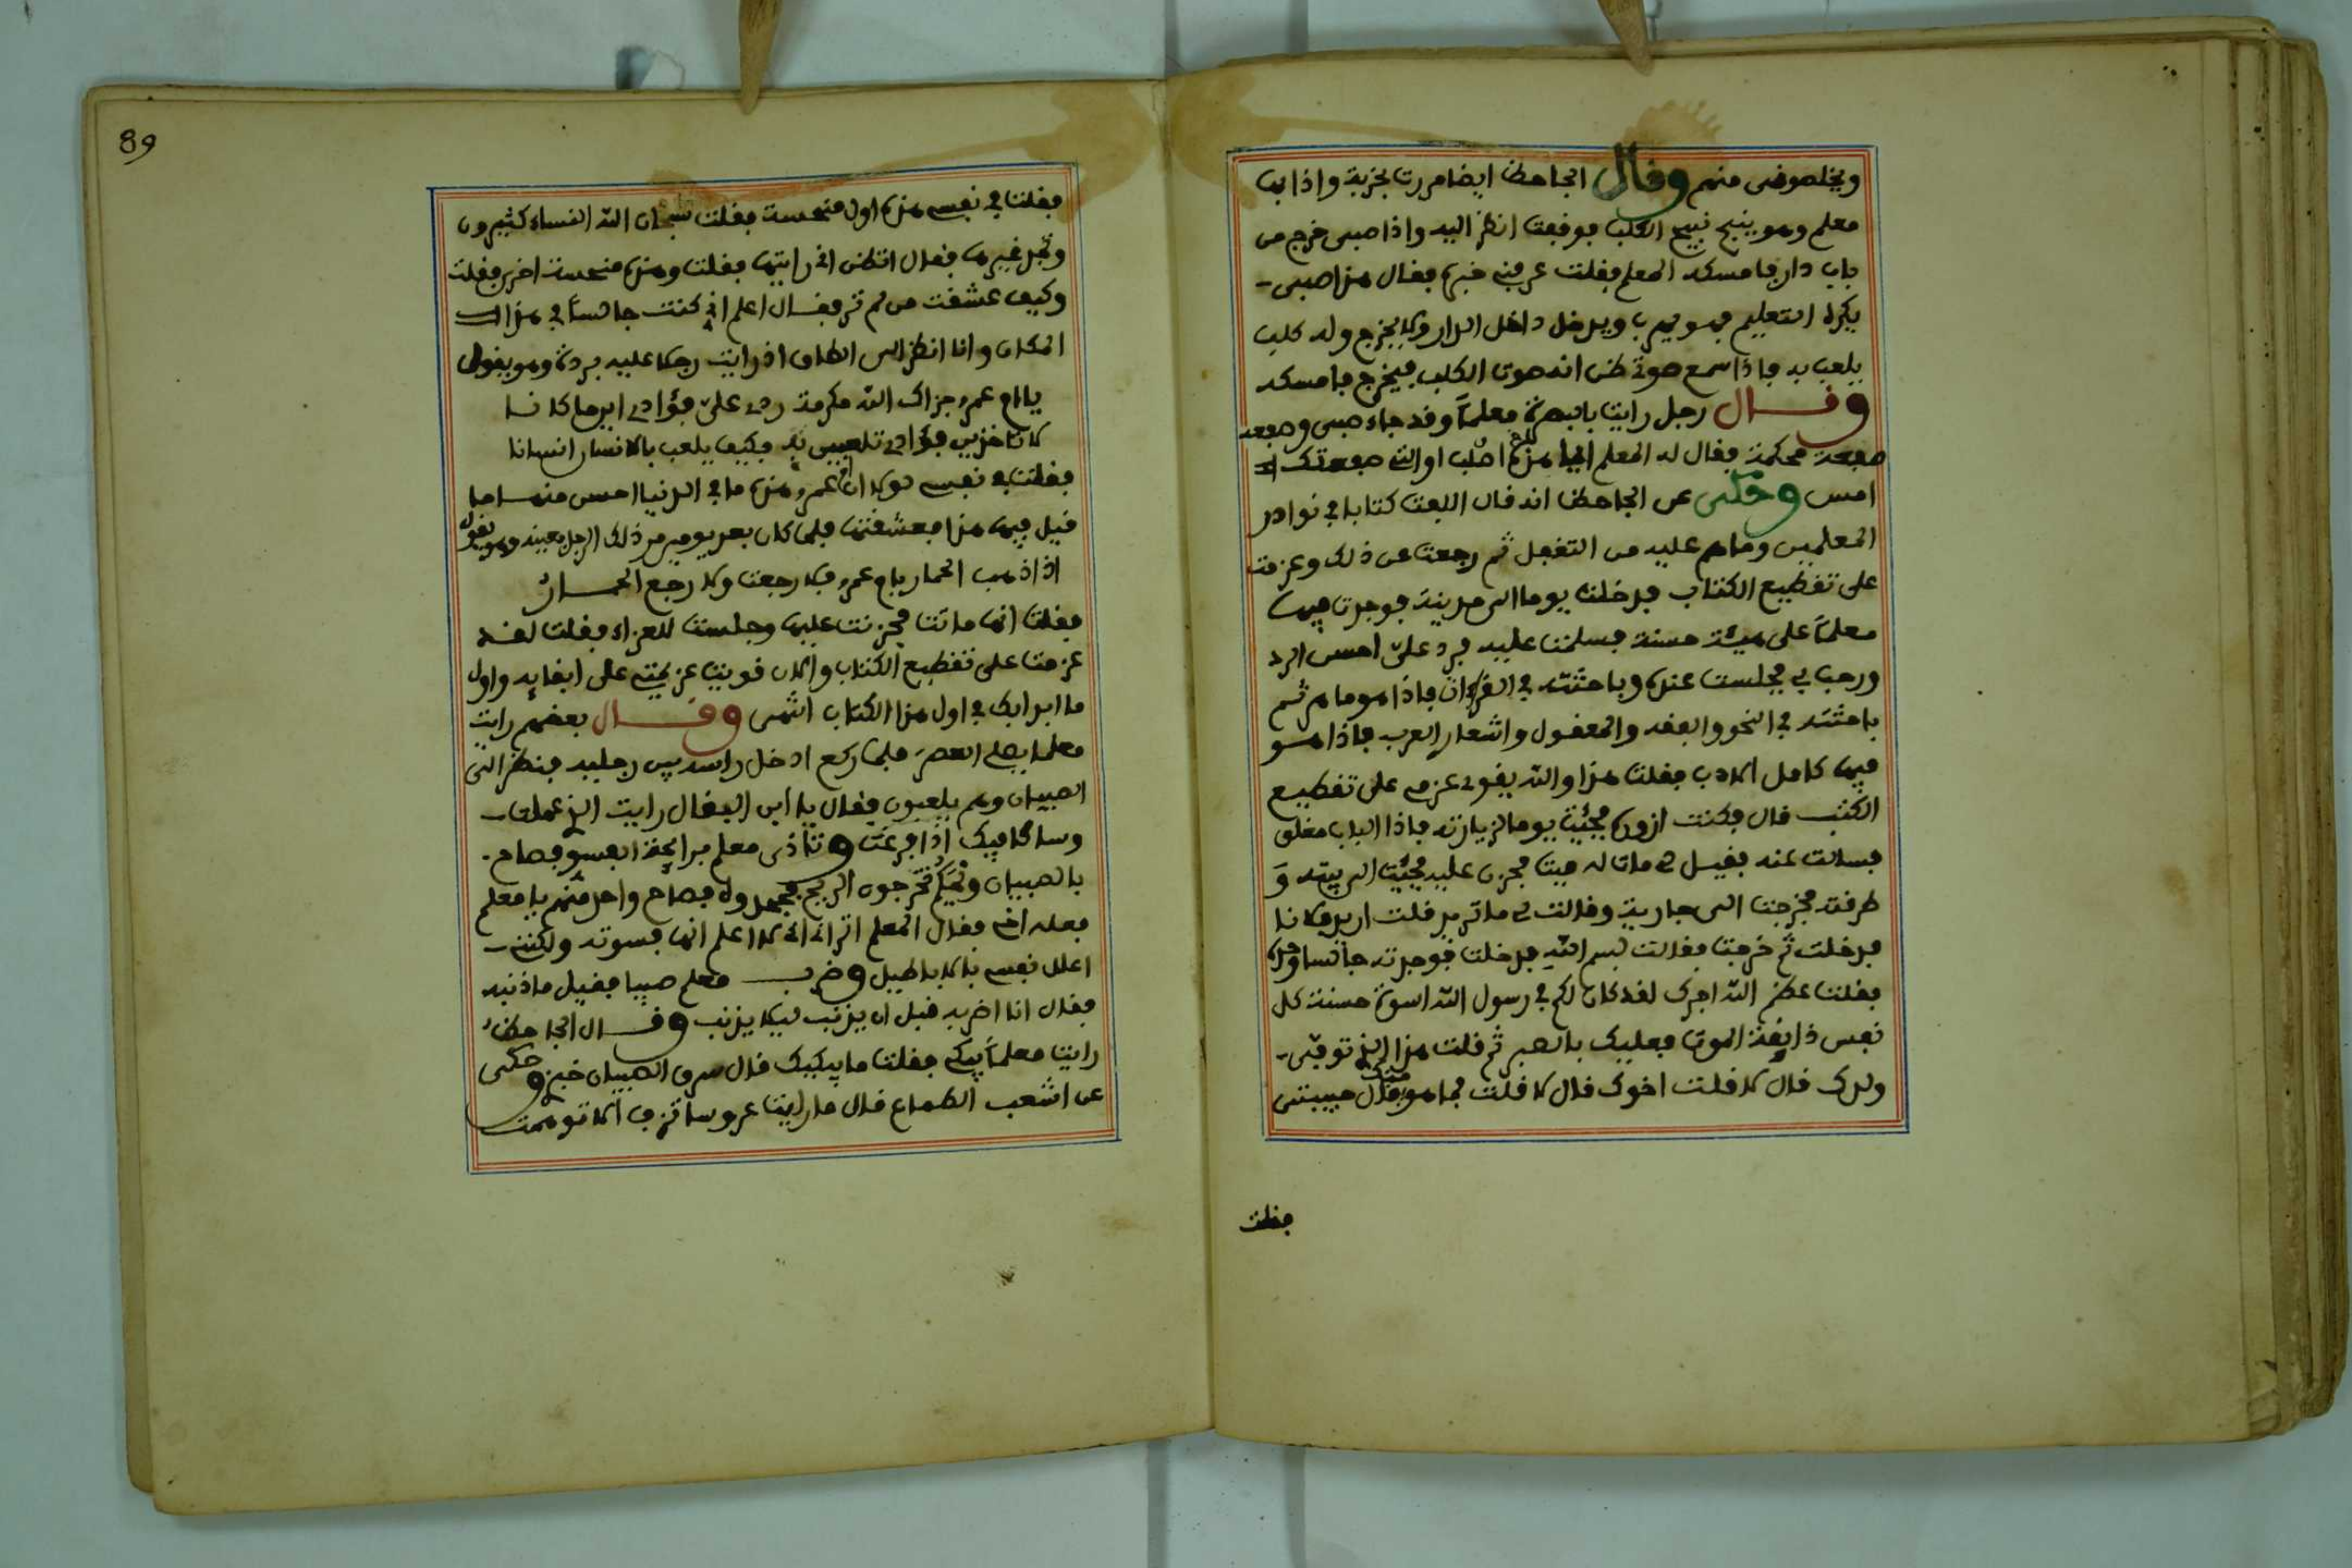 ويخلصونى منهم وقال الجاحظ ايضا مررت بخربة واذا بها
معلم وهو ينبح نبيح الكلب فوقفت انظر اليه واذا صبي خرج من
باب دار فامسكه المعلم فقلت عرفنى خبره فقال هذا صبى
يكره التعليم فهو يهرب ويدخل داخل الدار ولا يخرج وله كلب
يلعب به فاذا سمع صوتى ظن انه صوت الكلب فيخرج فامسكه
وقال رجل رايت بالبصرة معلماً وقد جاء صبى وصفعه
صفعة محكمة فقال له المعلم ايما هذه اصلب او التى صفعتك
امس وحكى عن الجاحظ انه قال الفت كتابا في نوادر
المعلمين وما هم عليه من التغفل ثم رجعت عن ذلك وعزمت
على تقطيع الكتاب فدخلت يوما الى مدينة فوجدت فيها
معلماً على هيئة حسنة فسلمت عليه فرد علىّ احسن الرد
ورحب بى فجلست عنده وباحثته في القرءان فاذا هو ماهر ثم
باحثته في النحو والفقه والمعقول واشعار العرب فاذا هو
فيها كامل الادب فقلت هذا والله يقوى عزمى على تقطيع
الكتب قال فكنت ازوره فجئت يوما لزيارته فاذا الباب مغلق
فسالت عنه فقيل لى مات له ميت فحزن عليه فجئت الى بيته و
طرقته فخرجت الى جارية وقالت لى ما تريد قلت اريد فلانا
فدخلت ثم خرجت فقالت بسم الله فدخلت فوجدته جالسا وحده
فقلت عظم الله اجرك لقد كان لكم في رسول الله اسوة حسنة كل
نفس ذايقة الموت فعليك بالصبر ثم قلت هذا الذي توفى
ولدك قال لا قلت اخوك قال لا قلت فما هو منك فقال حبيبتى
فقلت
89
فقلت في نفسى هذه اول منحسة فقلت سبحان الله النساء كثيرون
وتجد غيرها فقال اتظن انى رايتها فقلت وهذه منحسة اخرى فقلت
وكيف عشقت من لم تر فقال اعلم انى كنت جالساً في هذا
المكان وانا انظر الى الطاق اذ رايت رجلا عليه بردة وهو يقول
يا ام عمرو جزاك الله مكرمة ردى علىّ فؤادى اينما كانا
لا تاخذين فؤادى تلعبين به فكيف يلعب بالانسان انسانا
فقلت في نفسى لولا ان ام عمرو هذه ما في الدنيا احسن منها ما
قيل فيها هذا فعشقتها فلما كان بعد يومين مر ذلك الرجل بعينه وهو يقول
اذا ذهب الحمار بام عمرو فلا رجعت ولا رجع الحمار
فقلت انها ماتت فحزنت عليها وجلست للعزاء فقلت لقد
عزمت على تقطيع الكتاب والان قويت عزيمتى على ابقايه واول
ما ابدا بك في اول هذا الكتاب انتهى وقال بعضهم رايت
معلما يصلى العصر فلما ركع ادخل راسه بين رجليه فنظر الى
الصبيان وهم يلعبون فقال يا ابن البقال رايت الذي عملت
وساكافيك اذا فرغت وتأذى معلم من رايحة الفسو فصاح
بالصبيان ويحكم تخرجون الريح فصاح واحد منهم يا معلم
فعله اخى فقال المعلم اترانى لا اعلم انها فسوته ولكنى
اعلل نفسى بالاباطيل وضرب معلم صبيا فقيل ما ذنبه
فقال انا اضربه قبل ان يذنب ليلا يذنب وقال الجاحظ
رايت معلماً يبكى فقلت ما يبكيك قال سرق الصبيان خبزى وحكى
عن اشعب الطماع قال ما رايت عروسا تزف الا توهمت